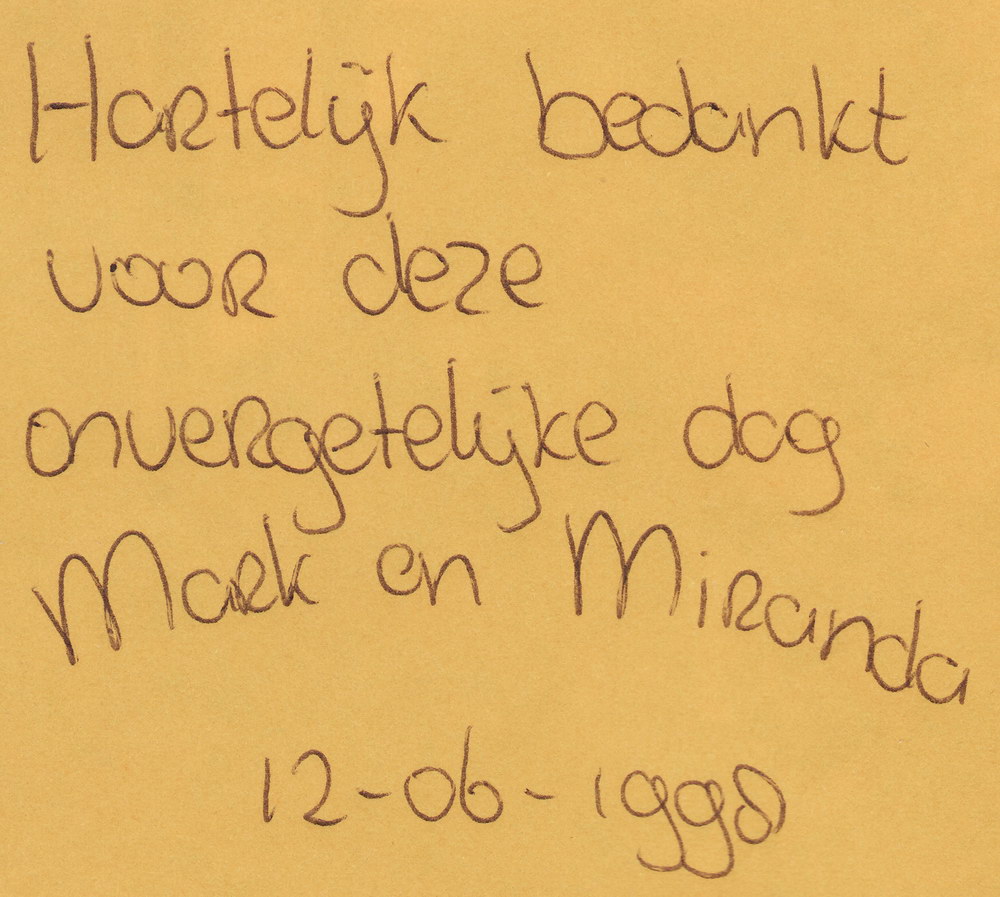 Hartelijk bedankt
voor deze
onvergetelijke dag
Mark en Miranda
12-06-1998